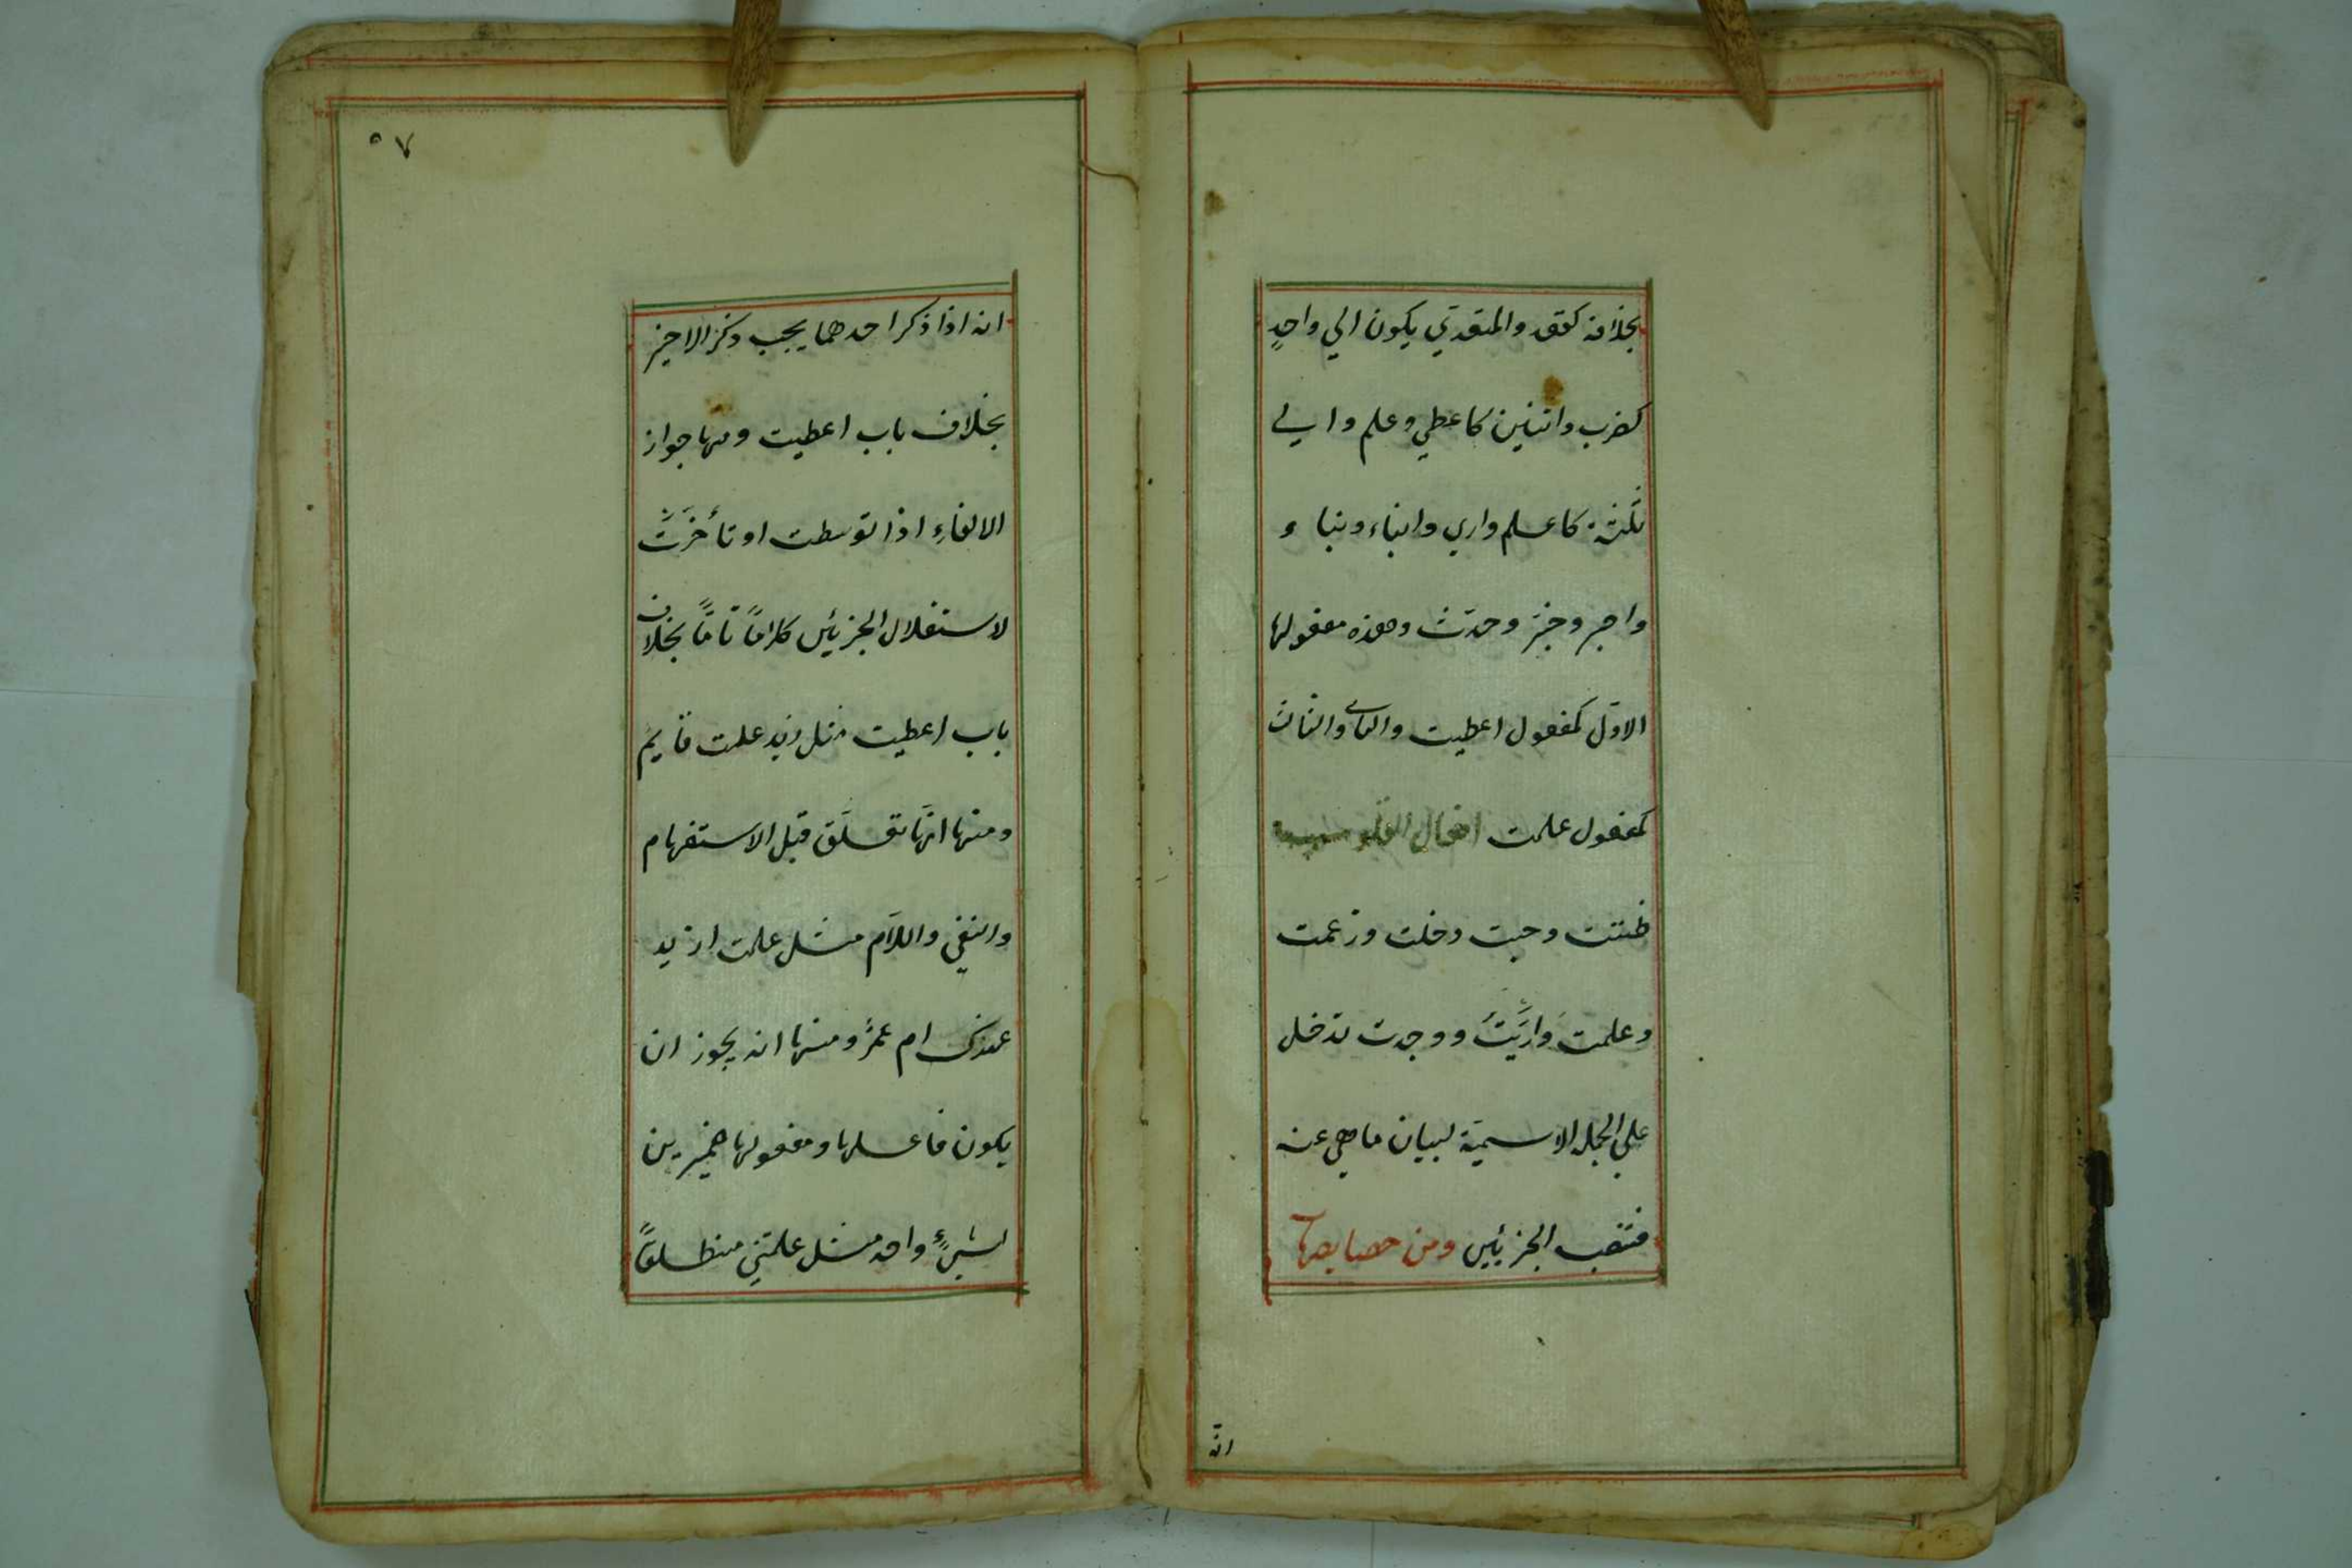 بخلافه كقعد والمتعدي يكون الي واحدٍ
كضرب واثنين كاعطي وعلم والي
ثلثة كاعلم واري وانباء ونباء و
واخبر وخبّر وحدّث وهذه مفعولها
الاوّل كمفعول اعطيت والثاني والثالث
كمفعول علمت افعال القلوب
ظننت وحسبت وخلت وزعمت
وعلمت وارَيْتَ ووجدت تدخل
علي الجملة الاسميّة لبيان ما هي عنه
فتنصب الجزئين ومن خصايصها
انّه
٥٧
انه اذا ذكر احدهما يجب ذكر الاخير
بخلاف باب اعطيت ومنها جواز
الالغاءِ اذا توسطت او تأخَّرَتْ
لاستقلال الجزئين كلاماً تامّاً بخلاف
باب اعطيت مثل زيد علمت قايم
ومنها انّها تعلَّق قبل الاستفهام
والنفي واللاَم مثل علمت ازيد
عندك ام عمرٌو ومنها انه يجوز ان
يكون فاعلها ومفعولها ضميرين
لشيءٍ واحد مثل علمتني منطلقاً